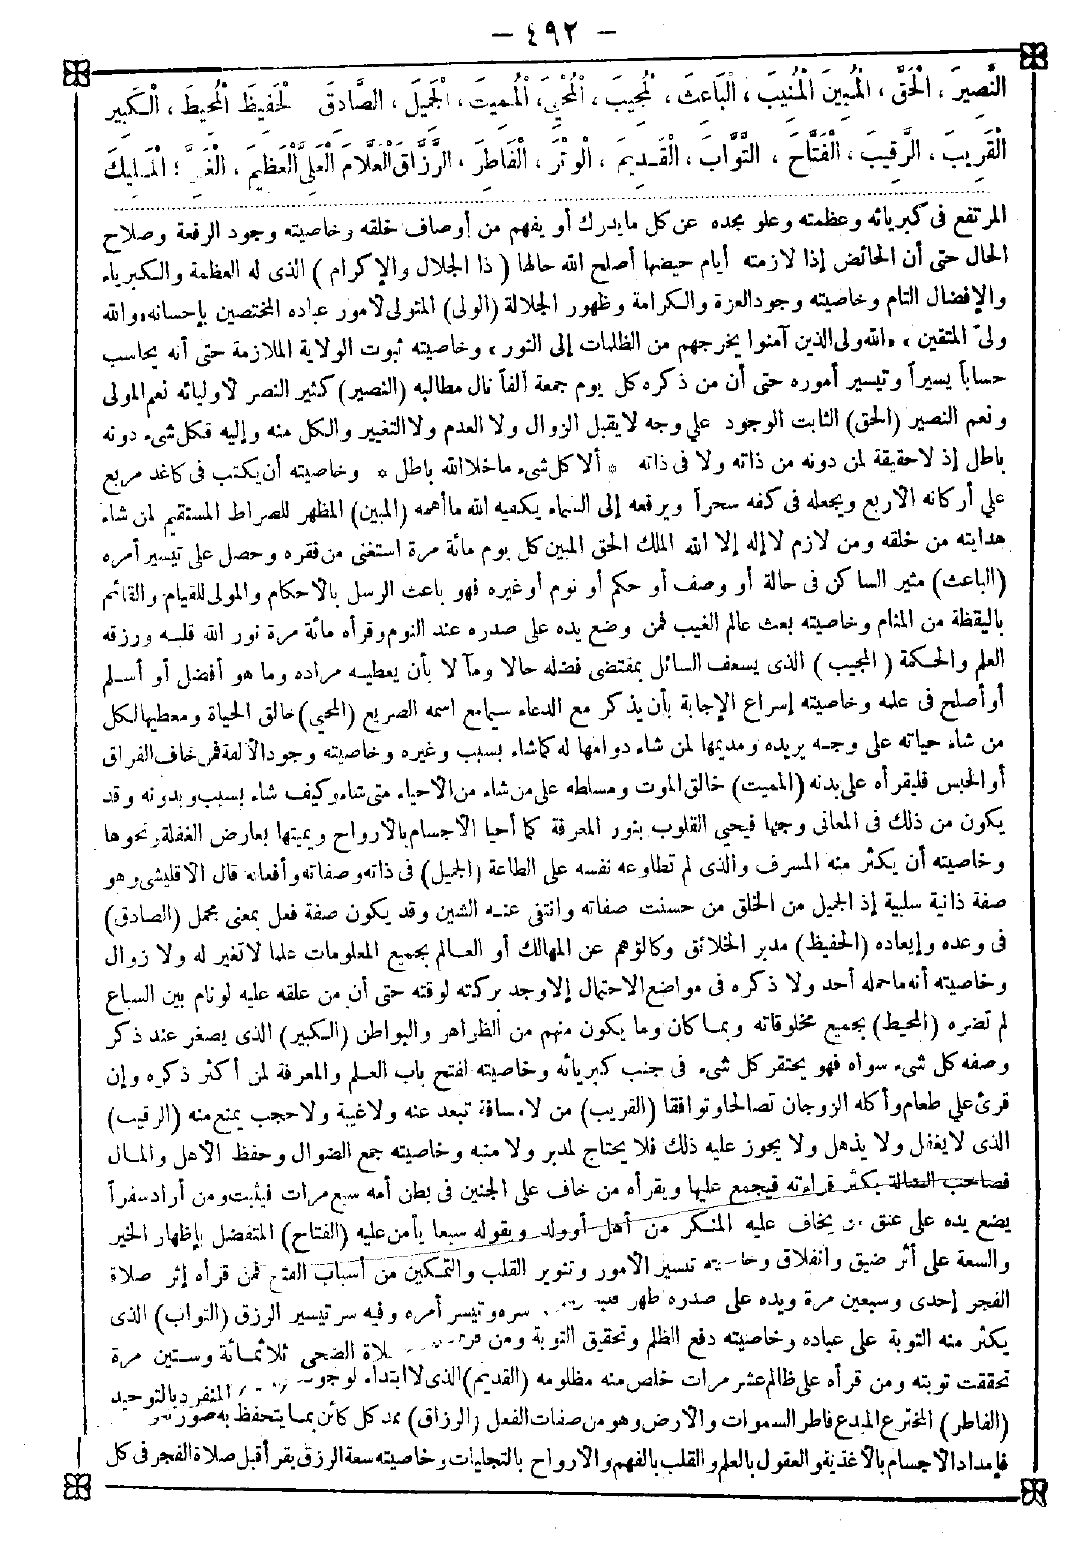 — ٤٩٢ —
النَّصِيرَ ، الْحَقَّ ، الْمُبِينَ الْمُنِيبَ ، الْبَاعِثَ ، الْمُجِيبَ ، الْمُحْيِيَ ، الْمُمِيتَ ، الْجَمِيلَ ، الصَّادِقَ الْحَفِيظَ الْمُحِيطَ ، الْكَبِيرَ
الْقَرِيبَ ، الرَّقِيبَ ، الْفَتَّاحَ ، التَّوَّابَ ، الْقَدِيمَ ، الْوِتْرَ ، الْفَاطِرَ ، الرَّزَّاقَ الْعَلَّامَ الْعَلِيَّ الْعَظِيمَ ، الْغَنِيَّ ؛ الْمَلِيكَ
المرتفع فى كبريائه وعظمته وعلو مجده عن كل مايدرك أو يفهم من أوصاف خلقه وخاصيته وجود الرفعة وصلاح
الحال حتى أن الحائض إذا لازمته أيام حيضها أصلح الله حالها ( ذا الجلال والإكرام ) الذى له العظمة والكبرياء
والإفضال التام وخاصيته وجود العزة والكرامة وظهور الجلالة (الولى) المتولى لأمور عباده المختصين بإحسانه ، والله
ولىّ المتقين ، ، الله ولى الذين آمنوا يخرجهم من الظلمات إلى النور ، وخاصيته ثبوت الولاية الملازمة حتى أنه يحاسب
حساباً يسيراً وتيسير أموره حتى أن من ذكره كل يوم جمعة ألفاً نال مطالبه (النصير) كثير النصر لأوليائه نعم المولى
ونعم النصير (الحق) الثابت الوجود على وجه لايقبل الزوال ولا العدم ولا التغيير والكل منه وإليه فكل شىء دونه
باطل إذ لاحقيقة لمن دونه من ذاته ولا فى ذاته * ألا كل شىء ماخلا الله باطل * وخاصيته أن يكتب فى كاغد مربع
على أركانه الأربع ويجعله فى كفه سحراً ويرقعه إلى السماء يكفيه الله ما أهمه (المبين) المظهر للصراط المستقيم لمن شاء
هدايته من خلقه ومن لازم لاإله إلا الله الملك الحق المبين كل يوم مائة مرة استغنى من فقره وحصل على تيسير أمره
(الباعث) مثير الساكن فى حالة أو وصف أو حكم أو نوم أو غيره فهو باعث الرسل بالأحكام والمولى للقيام والقائم
باليقظة من المنام وخاصيته بعث عالم الغيب فمن وضع يده على صدره عند النوم وقرأه مائة مرة نور الله قلبه ورزقه
العلم والحكمة (المجيب) الذى يسعف السائل بمقتضى فضله حالا ومآلا بأن يعطيه مراده وما هو أفضل أو أسلم
أو أصلح فى علمه وخاصيته إسراع الإجابة بأن يذكر مع الدعاء سيما مع اسمه السريع (المحيى) خالق الحياة ومعطيها لكل
من شاء حياته على وجه يريده ومديمها لمن شاء دوامها له كماشاء بسبب وغيره وخاصيته وجود الألفة فمن خاف الفراق
أو الحبس فليقرأه على بدنه (المميت) خالق الموت ومسلطه على من شاء من الأحياء متى شاء وكيف شاء بسبب وبدونه وقد
يكون من ذلك فى المعانى وجها فيحيى القلوب بنور المعرفة كما أحيا الأجسام بالأرواح ويميتها بعارض الغفلة ونحوها
وخاصيته أن يكثر منه المسرف والذى لم تطاوعه نفسه على الطاعة (الجميل) فى ذاته وصفاته وأفعاله قال الاقليشى وهو
صفة ذاتية سلبية إذ الجميل من الخلق من حسنت صفاته وانتفى عنه الشين وقد يكون صفة فعل بمعنى مجمل (الصادق)
فى وعده وإيعاده (الحفيظ) مدبر الخلائق وكالؤهم عن المهالك أو العالم بجميع المعلومات علما لاتغير له ولا زوال
وخاصيته أنه ماحمله أحد ولا ذكره فى مواضع الاحتمال إلا وجد بركته لوقته حتى أن من علقه عليه لو نام بين السباع
لم تضره (المحيط) بجميع مخلوقاته وبما كان وما يكون منهم من الظواهر والبواطن (الكبير) الذى يصغر عند ذكر
وصفه كل شىء سواه فهو يحتقر كل شىء فى جنب كبريائه وخاصيته لفتح باب العلم والمعرفة لمن أكثر ذكره وإن
قرئ على طعام وأكله الزوجان تصالحا وتوافقا (القريب) من لامسافة تبعد عنه ولا غيبة ولا حجب يمنع منه (الرقيب)
الذى لايغفل ولا يذهل ولا يجوز عليه ذلك فلا يحتاج لمدبر ولا منبه وخاصيته جمع الضوال وحفظ الأهل والمال
فصاحب الضالة يكثر قراءته فيجمع عليها ويقرأه من خاف على الجنين فى بطن أمه سبع مرات فيثبت ومن أراد سفراً
يضع يده على عنق من يخاف عليه المنكر من أهل أو ولد ويقوله سبعا يأمن عليه (الفتاح) المتفضل بإظهار الخير
والسعة على أثر ضيق وانفلاق وخاصيته تيسير الأمور وتنوير القلب والتمكين من أسباب الفتح فمن قرأه إثر صلاة
الفجر إحدى وسبعين مرة ويده على صدره طهر قلبه سره وتيسر أمره وفيه سر تيسير الرزق (التواب) الذى
يكثر منه التوبة على عباده وخاصيته دفع الظلم وتحقيق التوبة ومن صلاة الضحى ثلاثمائة وستين مرة
تحققت توبته ومن قرأه على ظالم عشر مرات خلص منه مظلومه (القديم) الذى لا ابتداء لوجوده المنفرد بالتوحيد
(الفاطر) المخترع المبدع فاطر السموات والأرض وهو من صفات الفعل (الرزاق) ممد كل كائن بما يتحفظ به صورته
فإمداد الأجسام بالأغذية والعقول بالعلم والقلب بالفهم والأرواح بالتجليات وخاصيته سعة الرزق يقرأ قبل صلاة الفجر فى كل